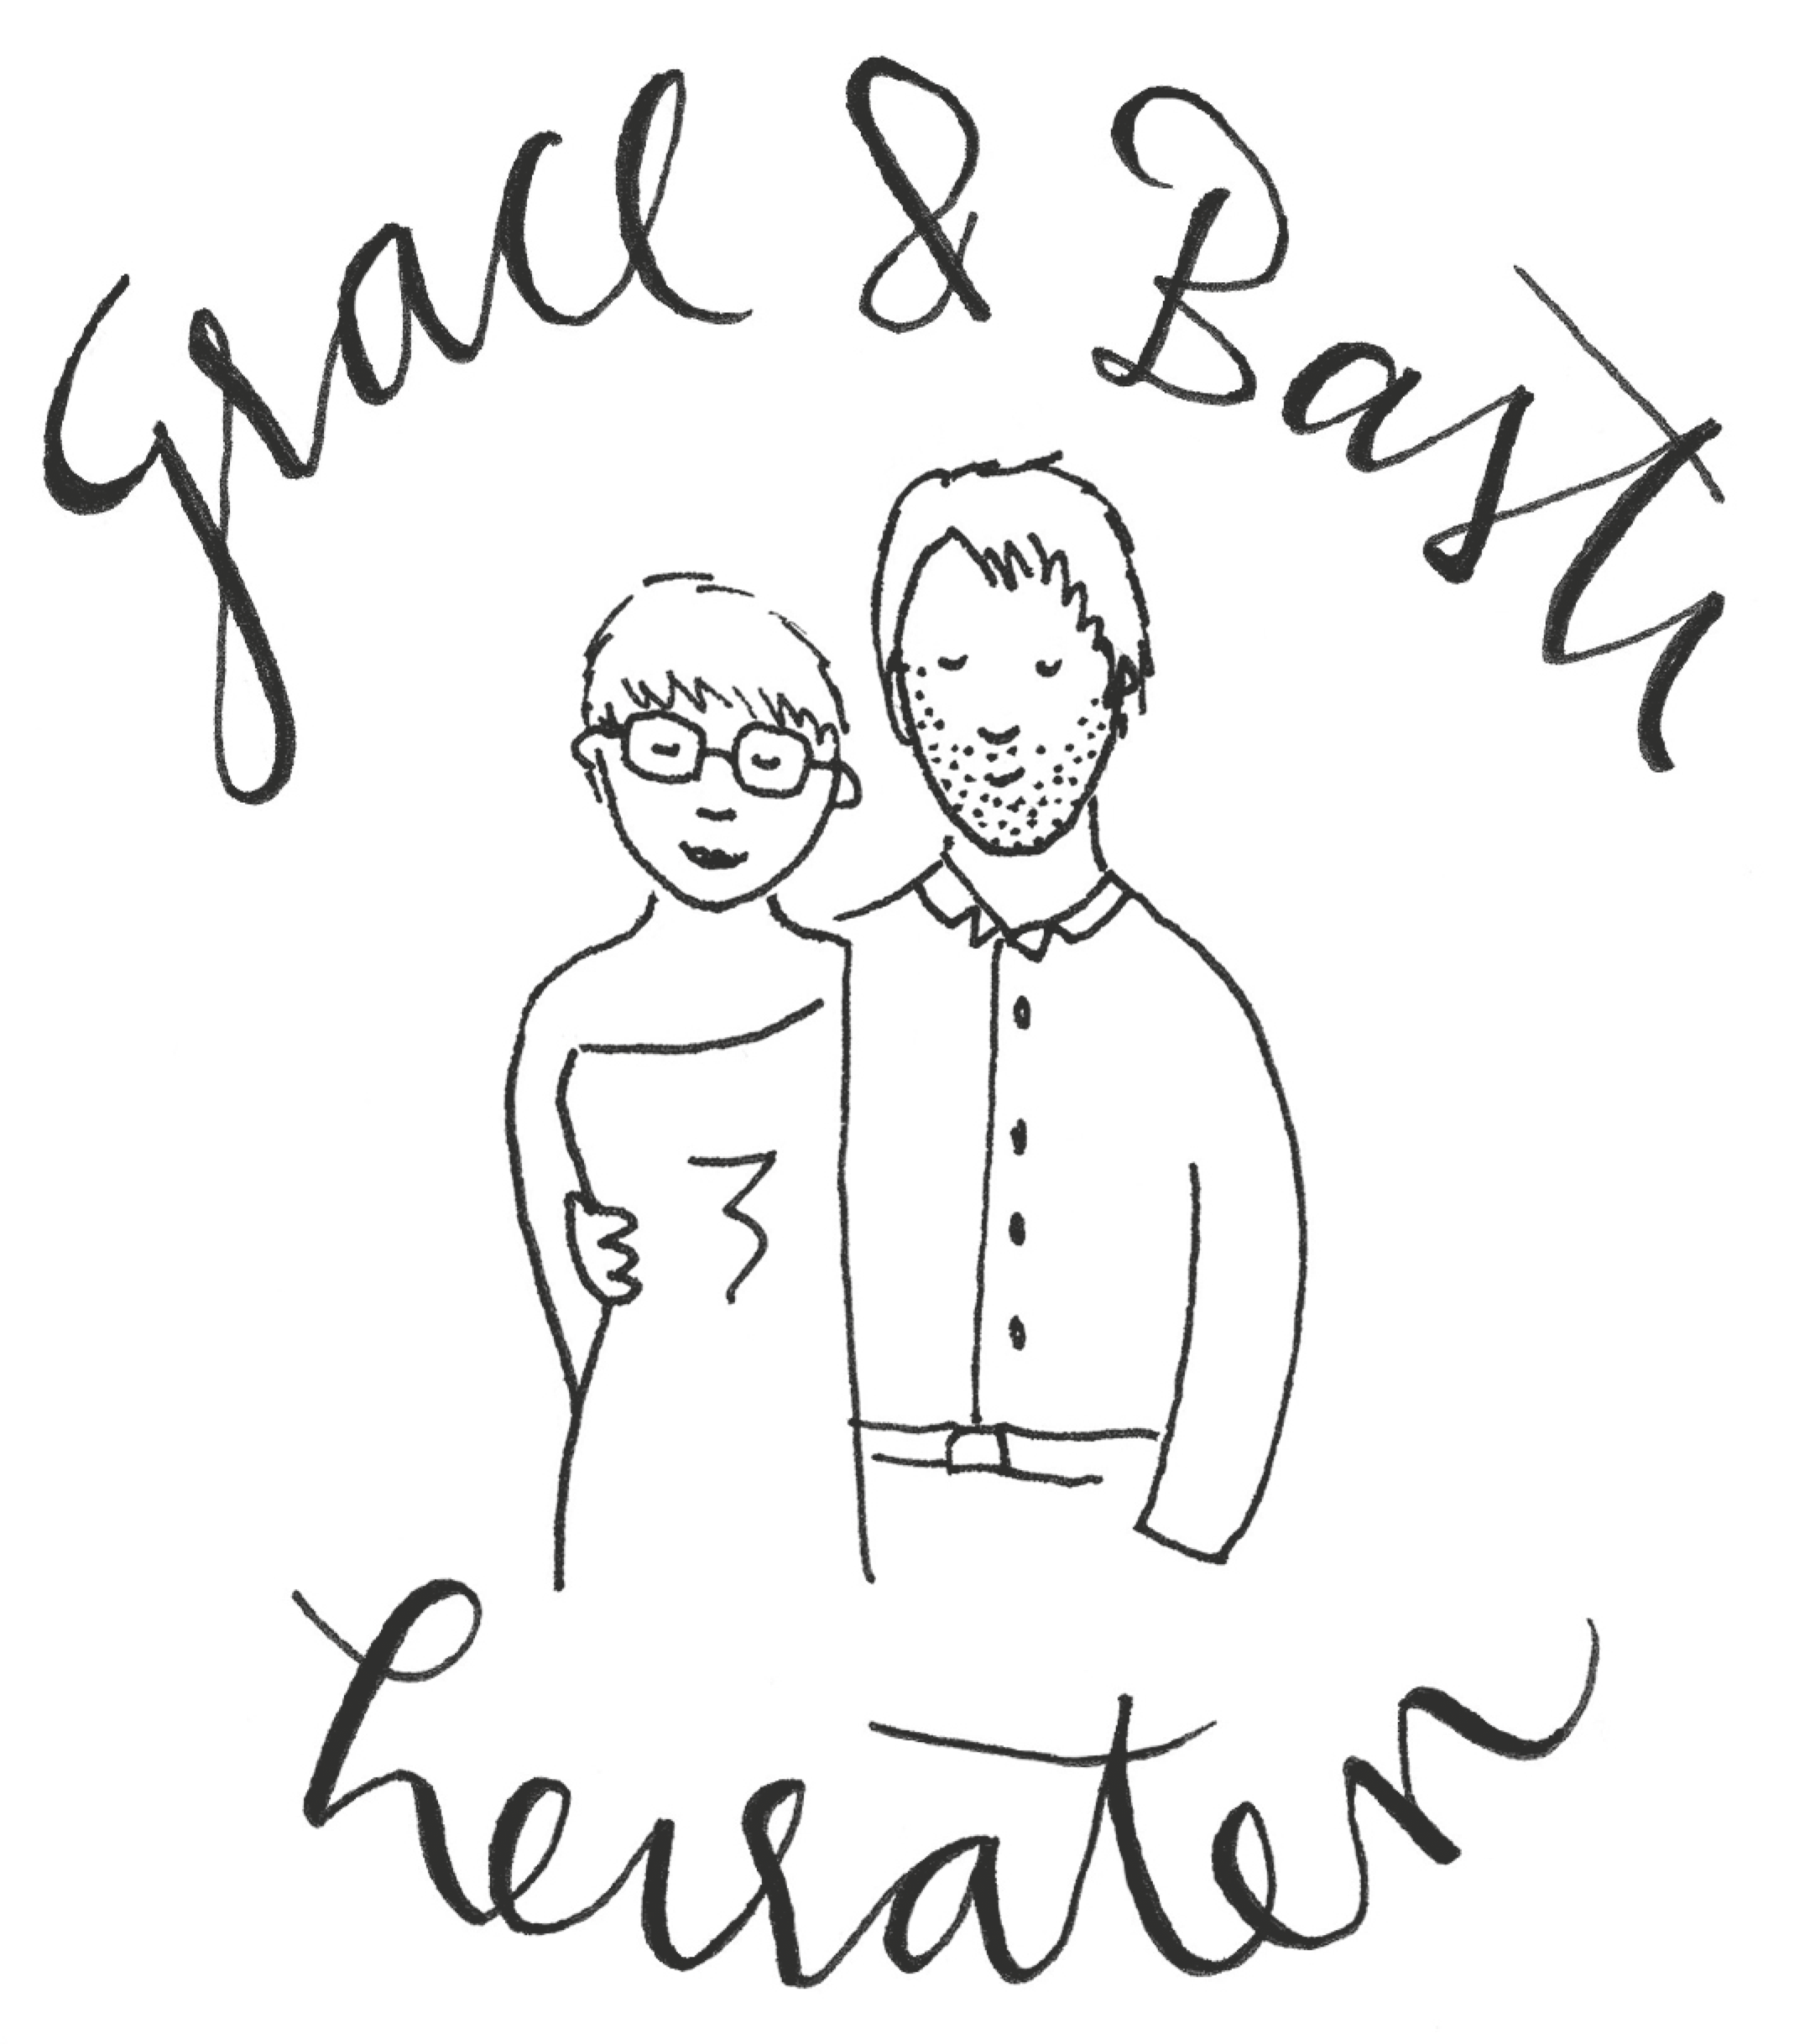 Grace & Basti
heiraten